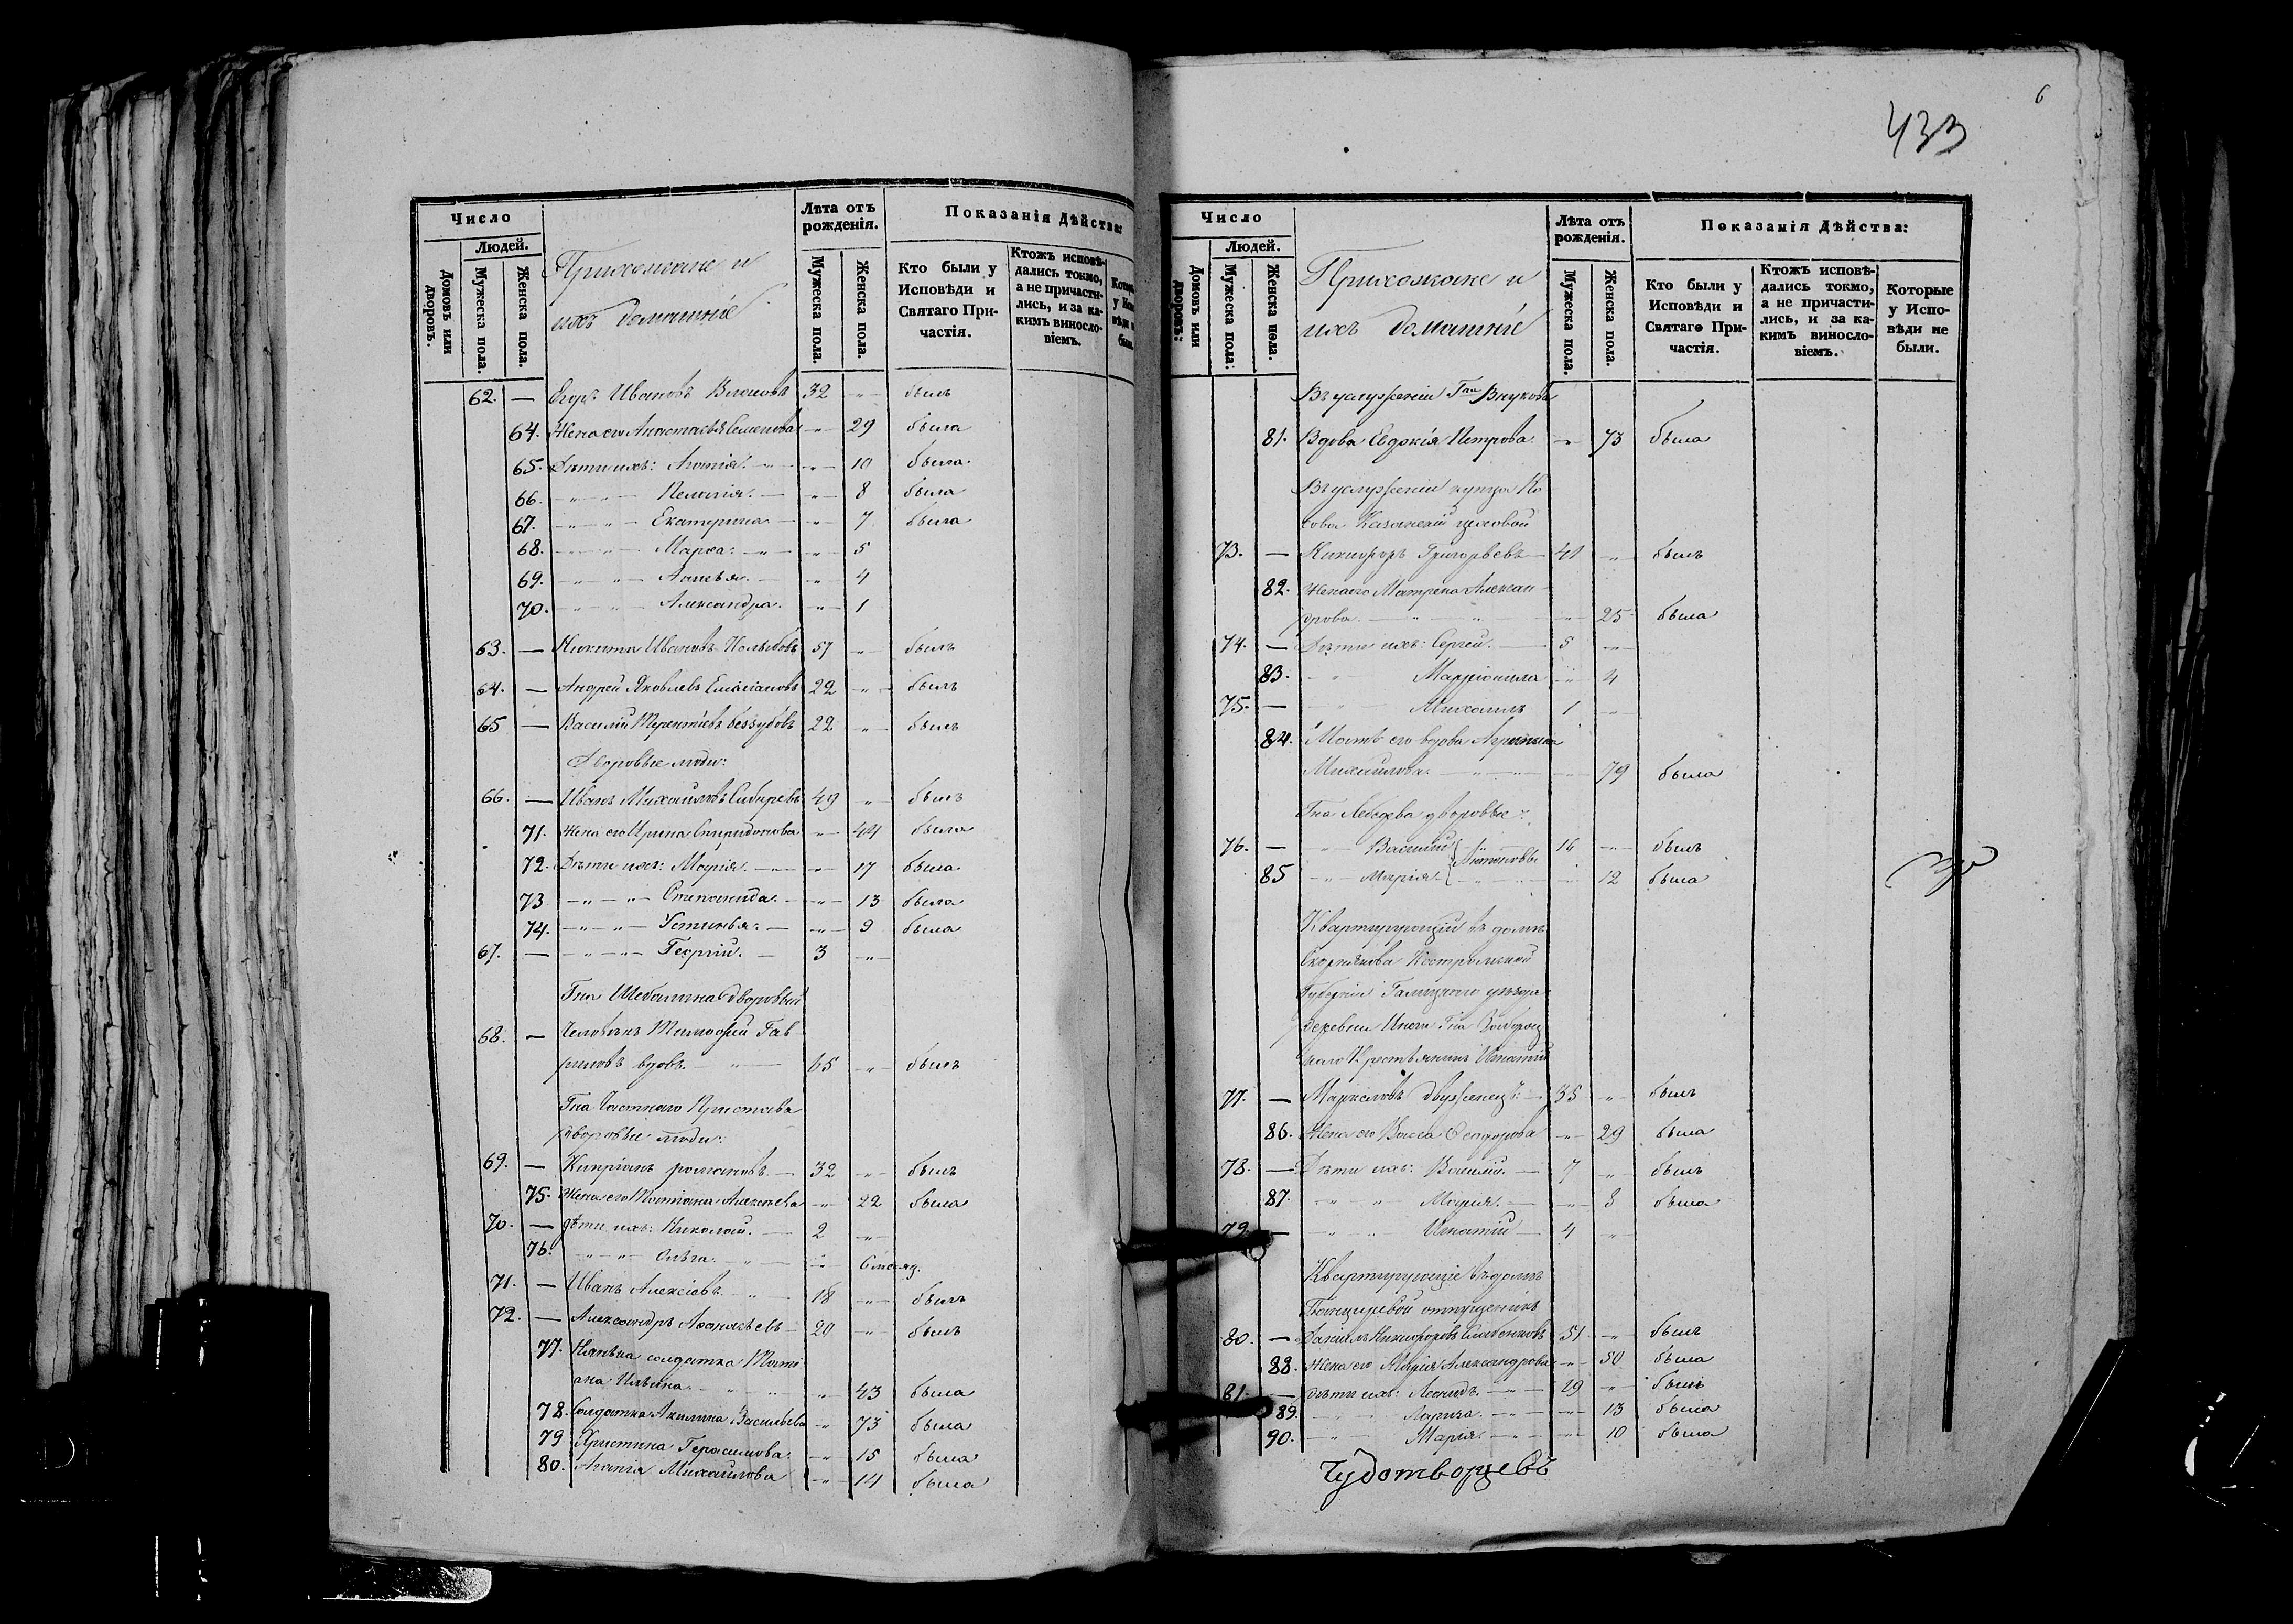 Число
Людей.
Домовъ или дворовъ.
Мужеска пола.
Женска пола.
Прихожане и
ихъ домашніе
Лѣта отъ рожденія.
Мужеска пола.
Женска пола.
Показанія Дѣйства:
Кто были у Исповѣди и Святаго При-частія.
Ктожъ исповѣ-дались токмо, а не причасти-лись, и за ка-кимъ винословіемъ.
62. — Егоръ Ивановъ 32 былъ
64. Жена его Анастасья Семенова 29 была
65. Дѣти ихъ: Агапія 10 была
66. Пелагія 8 была
67. Екатерина 7 была
68. Марѳа 5
69. 4
70. Александра 1
63. — Никита Ивановъ 57 былъ
64. — Андрей Яковлевъ 22 былъ
65 — Василій Терентіевъ Беззубовъ 22 былъ
Дворовые люди:
66. — Иванъ Михайловъ Сибиревъ 49 былъ
71. Жена его Ирина Спиридонова 44 была
72. Дѣти ихъ: Марія 17 была
73 Степанида 13 была
74. Устинья 9 была
67. — Георгій 3
Гна Шебалина дворовый
68. — Человѣкъ Тимофей Гав
риловъ вдовъ 65 былъ
Гна Частнаго Пристава
дворовые люди:
69. — Кипріанъ Романовъ 32 былъ
75. Жена его Татіана Алексѣева 22 была
70. — дѣти ихъ: Николай 2
76. Ольга 6 месяц.
71. — Иванъ Алексіевъ 18 былъ
72. — Александръ Аѳанасьевъ 20 былъ
77. Нянька солдатка Тати
ана Ильина 43 была
78. Солдатка Акилина Васильева 73 была
79 Христина Герасимова 15 была
80. Агапія Михайлова 14 была
433
6
Число
Людей.
Домовъ или дворовъ:
Мужеска пола:
Женска пола.
Прихожане и
ихъ домашніе
Лѣта отъ рожденія.
Мужеска пола.
Женска пола.
Показанія Дѣйства:
Кто были у Исповѣди и Святаго При-частія.
Ктожъ исповѣ-дались токмо, а не причасти-лись, и за ка-кимъ винословіемъ.
Которые у Испо-вѣди не были.
Въ услуженіи Гна Внукова
81. Вдова Евдокія Петрова 73 была
Въ услуженіи купца Ко
сова Казанскій цеховой
73. — Никифоръ Григорьевъ 41 былъ
82. Жена его Матрена Алексан
дрова 25 была
74. — Дѣти ихъ: Сергей 5
83. 4
75. — Михаилъ 1
84. Мать его вдова Агрипина
Михайлова 79 была
Гна Лебедева дворовые:
76. — Василий 16 былъ
Антоновы
85 Марія 12 была
Квартирующій въ домѣ
Скорнякова Костромской
Губерніи Галицкаго уѣзда
деревни Гна
Крестьянинъ Игнатій
77. — Маркеловъ двуженецъ 35 былъ
86. Жена его Васса Ѳеодорова 29 была
78. — Дѣти ихъ: Василий 7 былъ
87. Марія 8 была
79. — Игнатій 4
Квартирующіе въ домѣ
отпущеникъ
80. — Даніилъ Никифоровъ 51 былъ
88. Жена его Марія Александрова 50 была
81. — дѣти ихъ: Леонидъ 19 былъ
89. Лариса 13 была
90. Марія 10 была
Чудотворцевъ